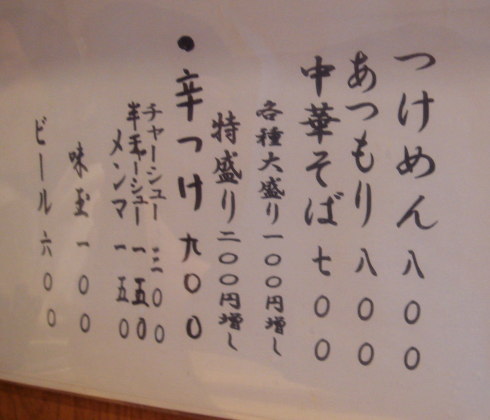 つけめん 八〇〇
あつもり 八〇〇
中華そば 七〇〇
各種大盛り 一〇〇円増し
特盛り 二〇〇円増し
・辛つけ 九〇〇
チャーシュー 三〇〇
半チャーシュー 一五〇
メンマ 一五〇
味玉 一〇〇
ビール 六〇〇